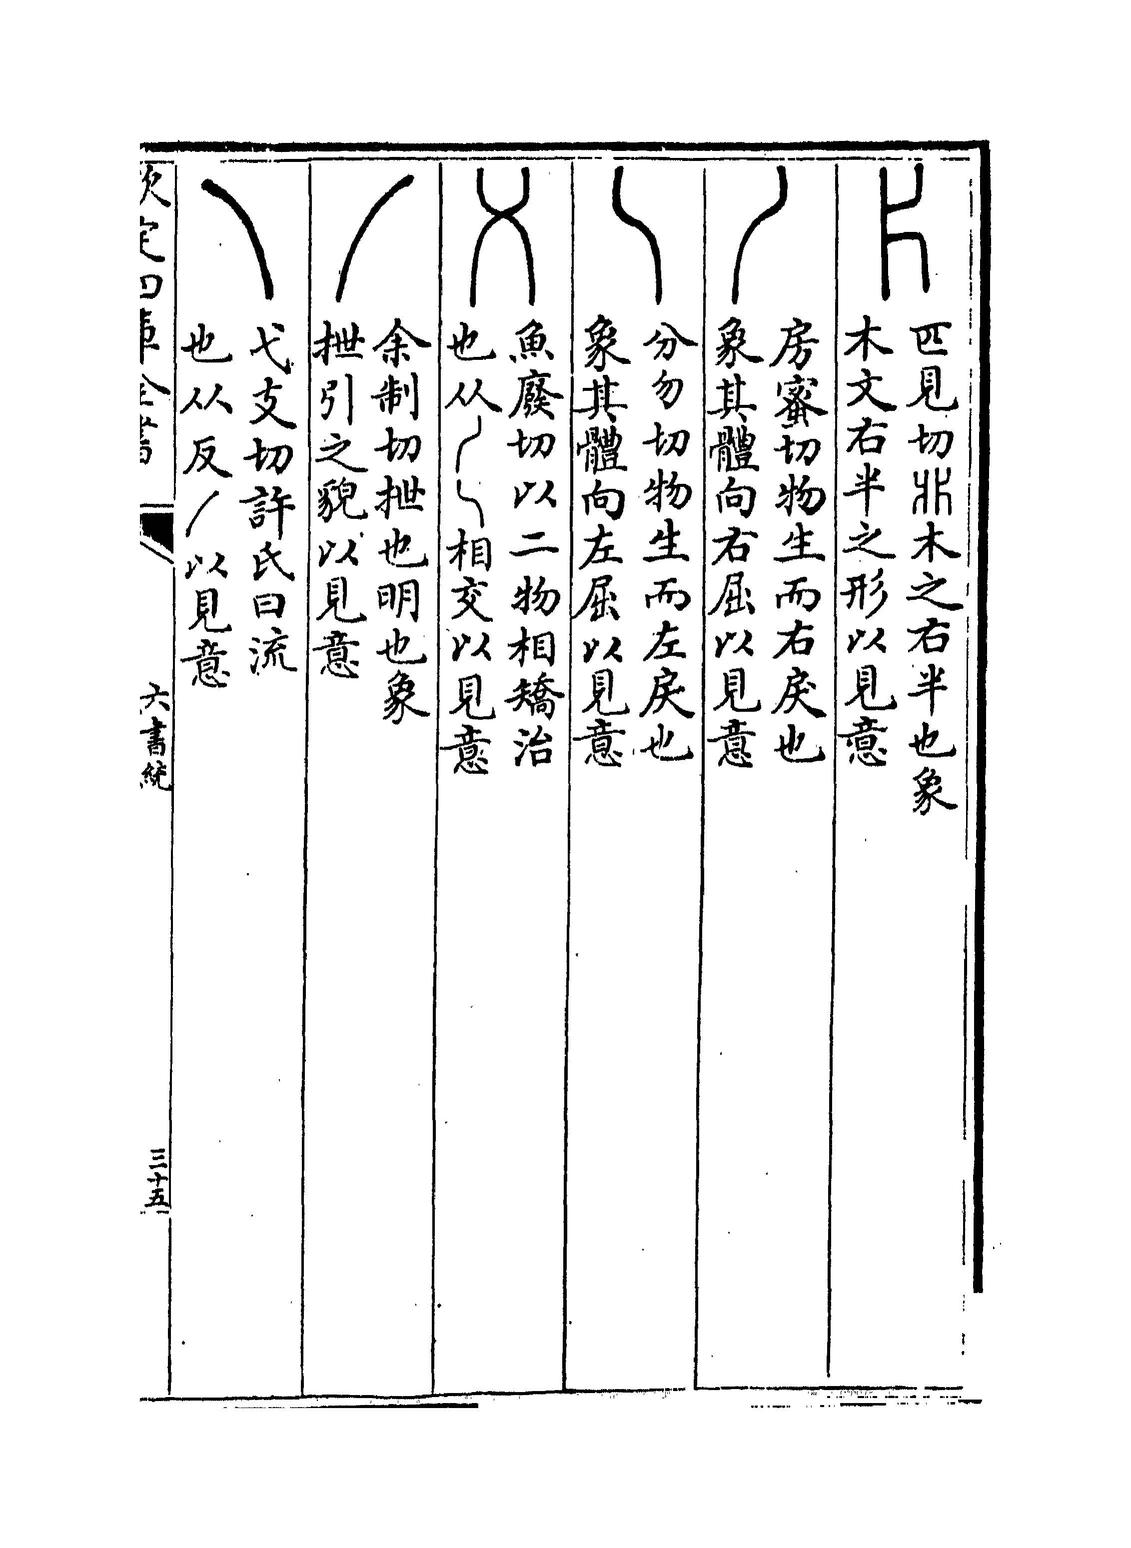 片
匹見切㸚木之右半也象
木文右半之形以見意
丿
房蜜切物生而右戾也
象其體向右屈以見意
乀
分勿切物生而左戾也
象其體向左屈以見意
乂
魚廢切以二物相矯治
也从丿乀相交以見意
𠂆
余制切抴也明也象
抴引之貌以見意
乁
弋支切許氏曰流
也从反𠂆以見意
欽定四庫全書
六書統
三十五